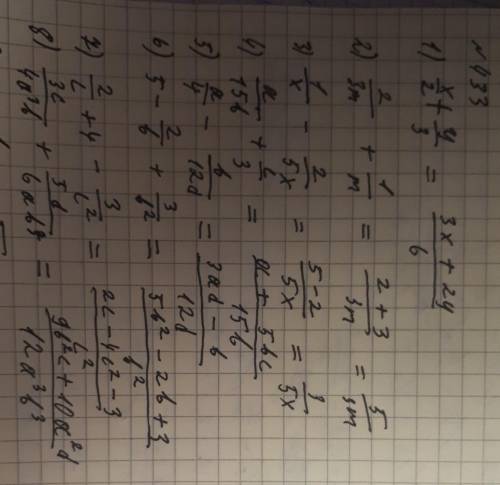 №433
1) x/2 + y/3 = (3x + 2y)/6
2) 2/3m + 1/m = (2 + 3)/3m = 5/3m
3) 1/x - 2/5x = (5 - 2)/5x = 3/5x
4) a/15b + c/3 = (a + 5bc)/15b
5) a/4 - b/12d = (3ad - b)/12d
6) 5 - 2/b + 3/b² = (5b² - 2b + 3)/b²
7) 2/c + 4 - 3/c² = (2c - 4c² - 3)/c²
8) 3c/4a³b + 5d/6ab³ = (9b²c + 10a²d)/12a³b³